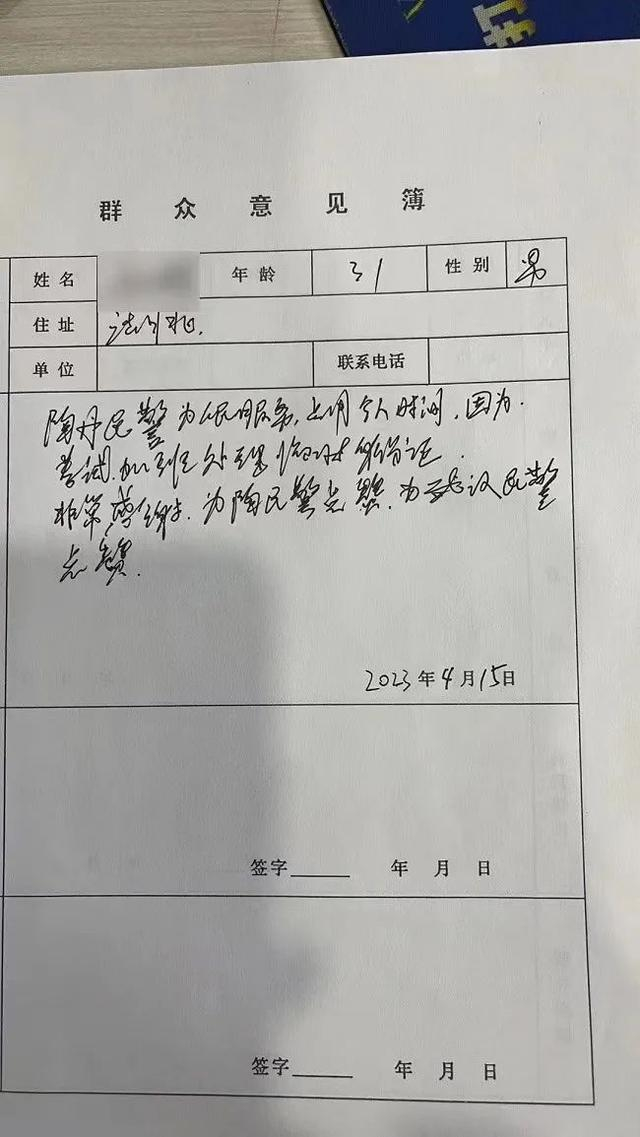 打
群众意见簿
姓名 年龄 31 性别 男
住址
单位 联系电话
陶丹民警为人民服务,占用个人时间,因为
考试加班处理临时身份证.
非常感谢.为陶民警点赞.为 民警
点赞.
2023年4月15日
签字 年 月 日
签字 年 月 日